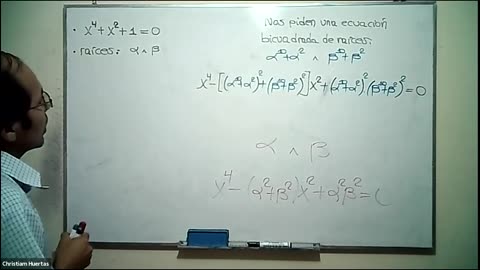 • x⁴+x²+1=0
• raíces: α ∧ β
Nos piden una ecuación
bicuadrada de raíces:
α¹⁰+α² ∧ β¹⁰+β²
x⁴-[(α¹⁰+α²)²+(β¹⁰+β²)²]x²+(α¹⁰+α²)²(β¹⁰+β²)²=0
α ∧ β
x⁴-(α²+β²)x²+α²β²=0
Christiam Huertas